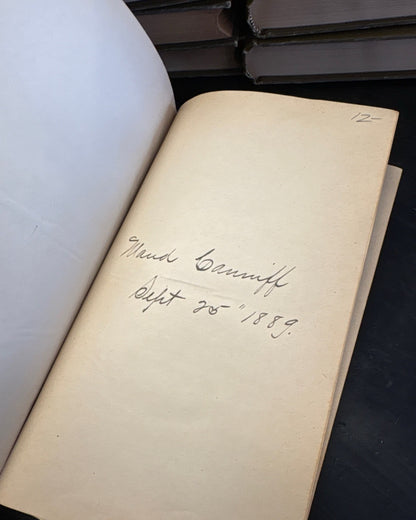 12-
Maud Canniff
Sept 25" 1889.